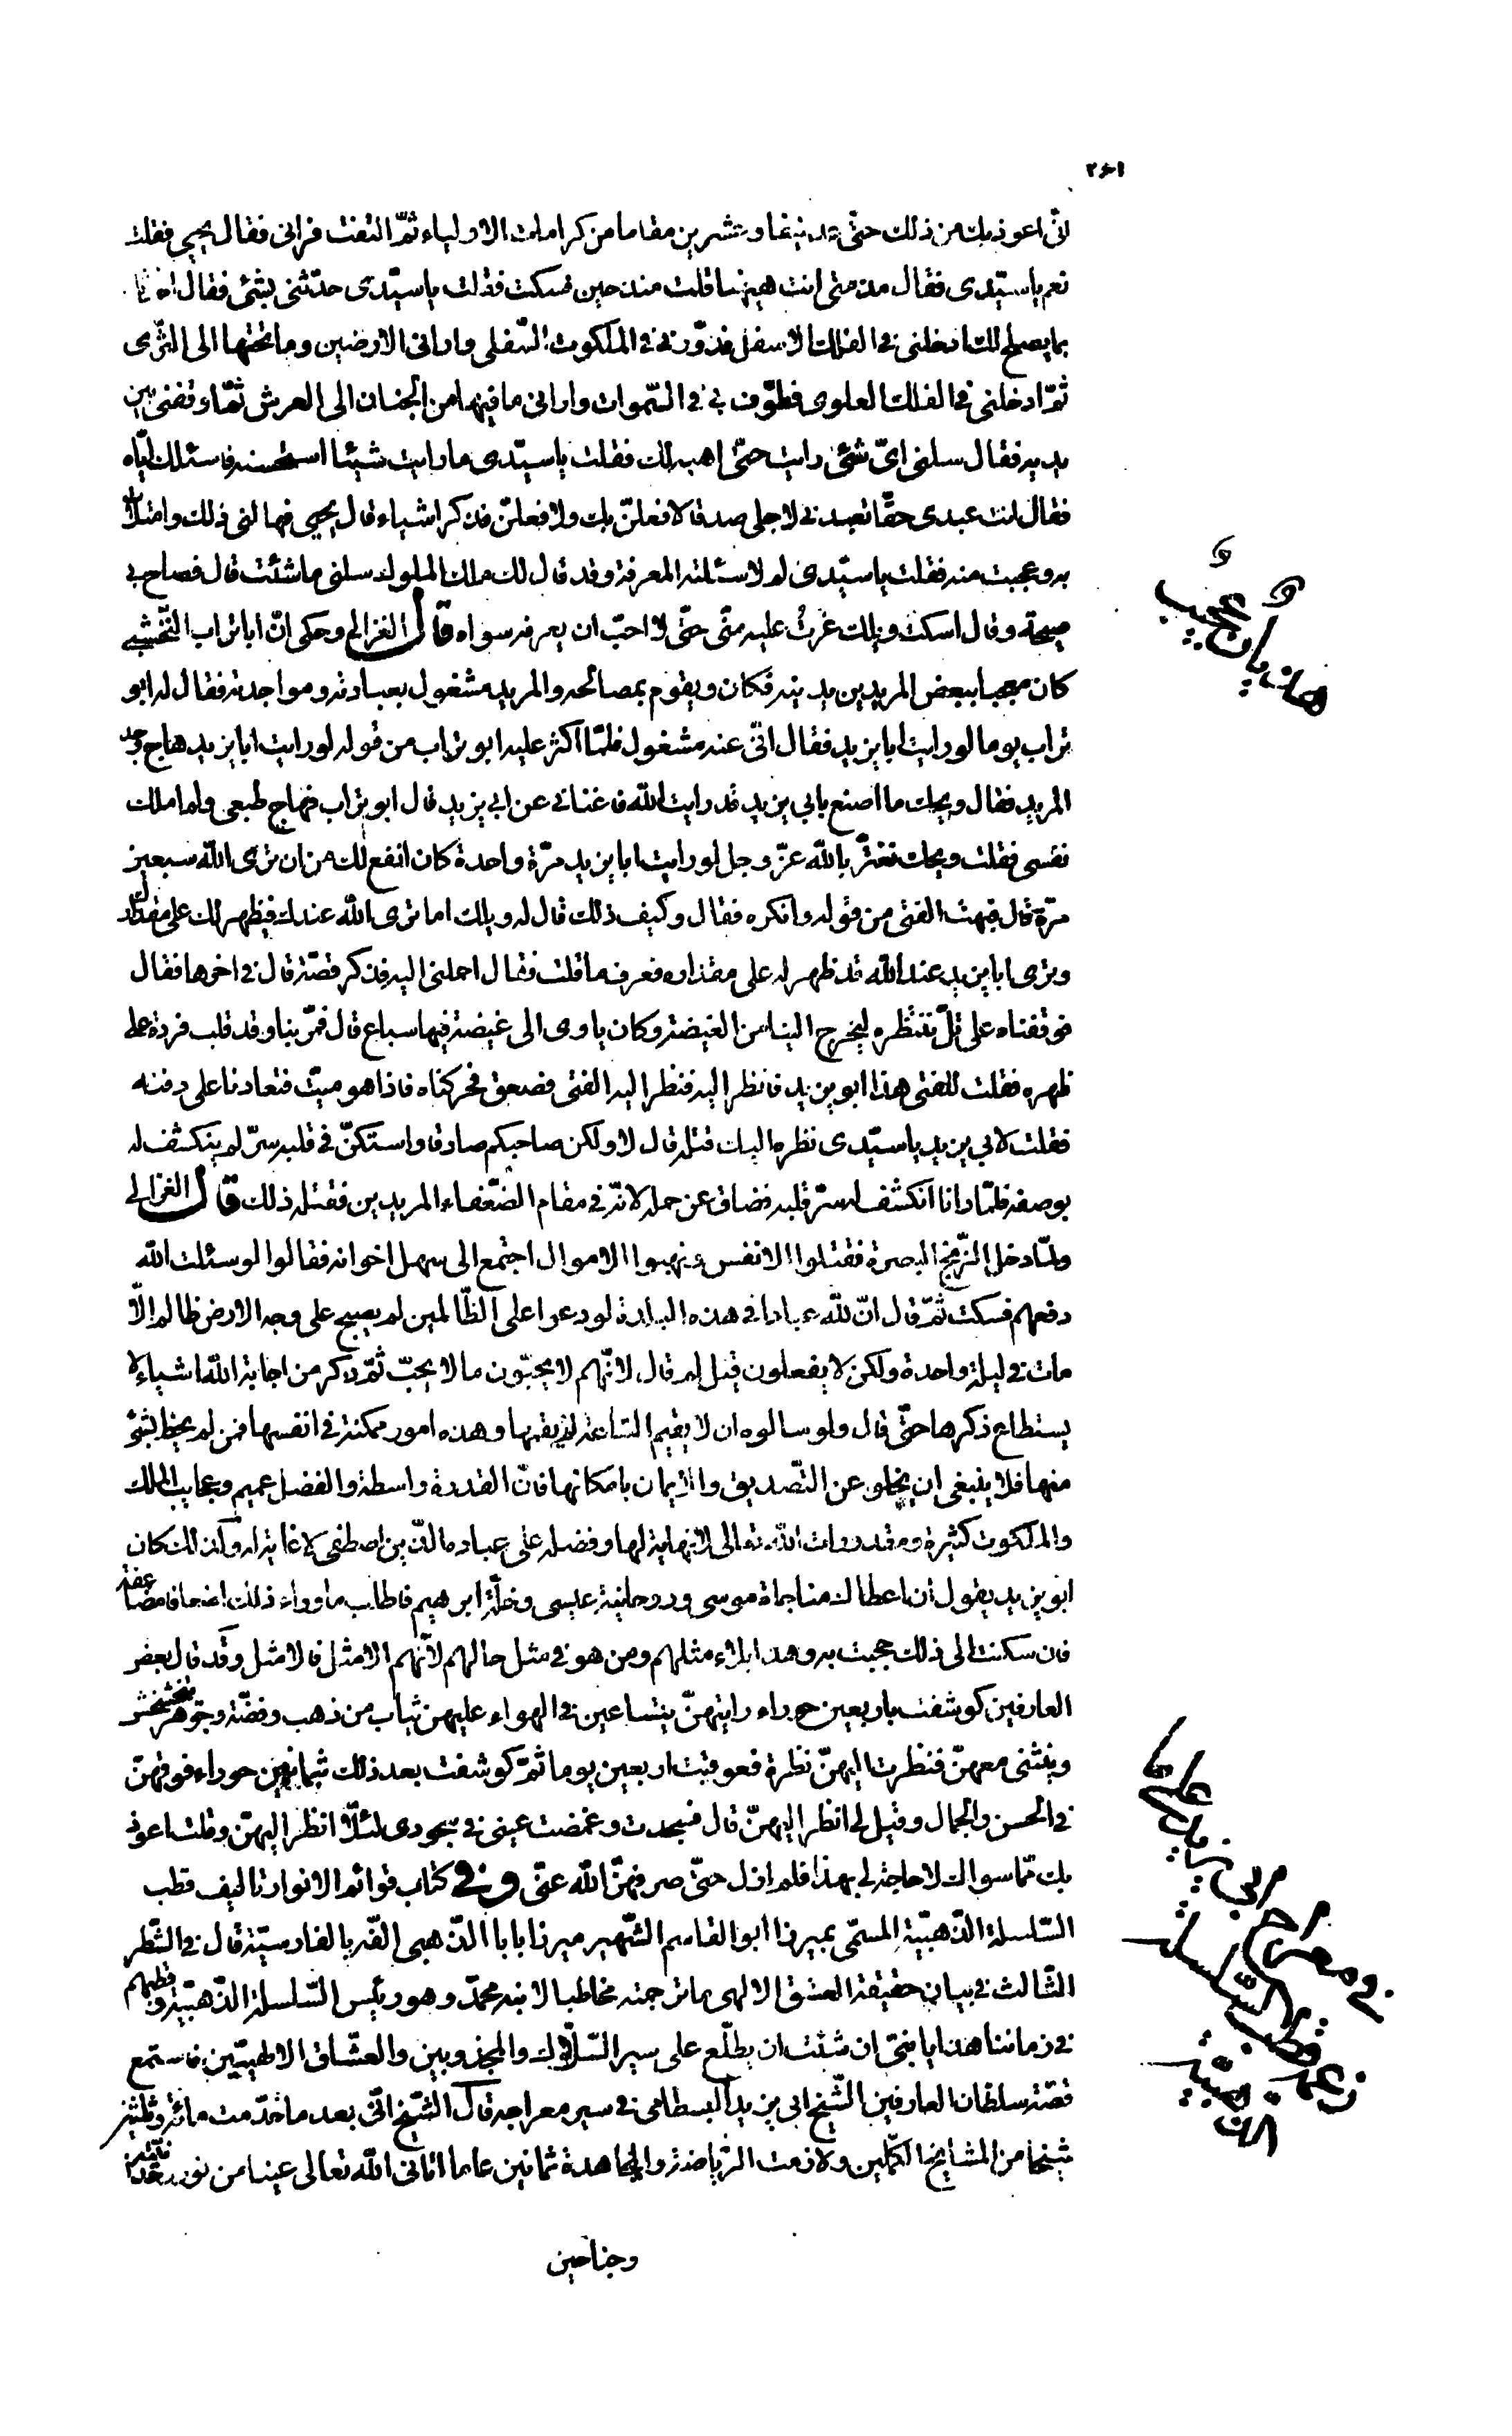 انّى اعوذ بك من ذلك حتّى عد نيفا و عشرين مقاما من كرامات الاولياء ثمّ التفت فرانى فقال يحيى فقلت
نعم يا سيّدى فقال مذ متى انت هيهنا قلت منذ حين فسكت فقلت يا سيّدى حدّثنى بشئ فقال احدثك
بما يصلح لك ادخلنى فى الفلك الاسفل فدوّرنى فى الملكوت السّفلى وارانى الارضين وما تحتها الى الثّرى
ثمّ ادخلنى فى الفلك العلوى فطوّف بى فى السّموات وارانى ما فيها من الجنان الى العرش ثمّ اوقفنى بين
يديه فقال سلنى اىّ شئ رايت حتّى اهبه لك فقلت يا سيّدى ما رايت شيئا استحسنه فاسئلك ايّاه
فقال انت عبدى حقّا تعبدنى لاجلى صدقا لافعلنّ بك ولافعلنّ فذكر اشياء قال يحيى فهالنى ذلك وامتلأت
به وعجبت منه فقلت يا سيّدى لم لا سئلته المعرفة وقد قال لك ملك الملوك سلنى ما شئت قال فصاح بى
صيحة وقال اسكت ويلك غرت عليه منّى حتّى لا احبّ ان يعرفه سواه قال الغزالى وحكى انّ اباتراب النّخشبى
كان معجبا ببعض المريدين يدنيه فكان ويقوم بمصالحه والمريد مشغول بعبادته ومواجدته فقال له ابو
تراب يوما لو رايت ابايزيد فقال انّى عنه مشغول فلمّا اكثر عليه ابو تراب من قوله لو رايت ابايزيد هاج وجد
المريد فقال ويحك ما اصنع بابى يزيد قد رايت اللّه فاغنانى عن ابى يزيد قال ابو تراب فهاج طبعى ولم املك
نفسى فقلت ويحك تغترّ باللّه عزّ وجل لو رايت ابايزيد مرّة واحدة كان انفع لك من ان ترى اللّه سبعين
مرّة قال فبهت الفتى من قوله وانكره فقال وكيف ذلك قال له ويلك اما ترى اللّه عندك فيظهر لك على مقدارك
وترى ابايزيد عند اللّه قد ظهر له على مقداره فعرف ما قلت فقال احملنى اليه فذكر قصّة قال فى اخرها فقال
فوقفناه على تلّ ننتظره ليخرج الينا من الغيضة وكان ياوى الى غيضة فيها سباع قال فمرّ بنا وقد قلب فروة على
ظهره فقلت للفتى هذا ابويزيد فانظر اليه فنظر اليه الفتى فصعق فحركناه فاذا هو ميّت فتعاونا على دفنه
فقلت لابى يزيد يا سيّدى نظره اليك قتله قال لا ولكن صاحبكم صادقا واستكنّ فى قلبه سرّ لم ينكشف له
بوصفه فلمّا رانا انكشف له سرّ قلبه فضاق عن حمله لانّه فى مقام الضّعفاء المريدين فقتله ذلك قال الغزالى
ولمّا دخل الزّنج البصرة فقتلوا الانفس ونهبوا الاموال اجتمع الى سهل اخوانه فقالوا لو سئلت اللّه
دفعهم فسكت ثمّ قال انّ للّه عبادا فى هذه البلدة لو دعوا على الظّالمين لم يصبح على وجه الارض ظالم الّا
مات فى ليلة واحدة ولكن لا يفعلون قيل لم قال لانّهم لا يحبّون ما لا يحبّ ثمّ ذكر من اجابة اللّه اشياء لا
يستطاع ذكرها حتّى قال ولو سالوه ان لا يقيم السّاعة لم يقمها وهذه امور ممكنة فى انفسها فمن لم يحظ بشئ
منها فلا ينبغى ان يخلو عن التّصديق والايمان بامكانها فانّ القدرة واسطة والفضل عميم وعجايب الملك
والملكوت كثيرة ومقدورات اللّه تعالى لا نهاية لها وفضله على عباده الذين اصطفى لا غاية له ولذلك كان
ابويزيد يقول ان اعطاك مناجاة موسى وروحانية عيسى وخلّة ابرهيم فاطلب ماوراء ذلك اضعافا مضاعفة
فان سكنت الى ذلك حجبت به وهذا بلاء مثلهم ومن هو فى مثل حالهم لانّهم الامثل فالامثل وقد قال بعض
العارفين كوشفت باربعين حوراء رايتهنّ يتساعين فى الهواء عليهن ثياب من ذهب وفضّة وجوهر تتخشخش
وينثنى معهنّ فنظرت اليهنّ نظرة فعوقبت اربعين يوما ثمّ كوشفت بعد ذلك بثمانين حوراء فوقهنّ
فى الحسن والجمال وقيل لى انظر اليهنّ قال فسجدت وغمضت عينى فى سجودى لئلّا انظر اليهنّ وقلت اعوذ
بك ممّا سواك لا حاجة لى بهذا فلم ازل حتّى صرفهنّ اللّه عنّى وفى كتاب قوائم الانوار تاليف قطب
السّلسلة الذّهبيّة المسمّى بميرزا ابوالقاسم الشّهير ميرزا بابا الذّهبى الّفه بالفارسيّة قال فى الشّطر
الثّالث فى بيان حقيقة العشق الالهى ما ترجمته مخاطبا لابنه محمّد وهو رئيس السّلسلة الذّهبيّة وقطبهم
فى زماننا هذا يا بنىّ ان شئت ان يطلّع على سير السّلّاك والمجذوبين والعشّاق الالهيّين فاستمع
قصّة سلطان العارفين الشّيخ ابى يزيد البسطامى فى سير معراجه قال الشّيخ انّى بعد ما خدّمت مائة وثلثين
شيخا من المشايخ الكمّلين ولازمت الرّياضة والمجاهدة ثمانين عاما اتانى اللّه تعالى عينا من نور
وجناحين
هذيان عجيب
فى معراج ابى يزيد على ما
زعمه قطب السّلسلة
الذهبيّة